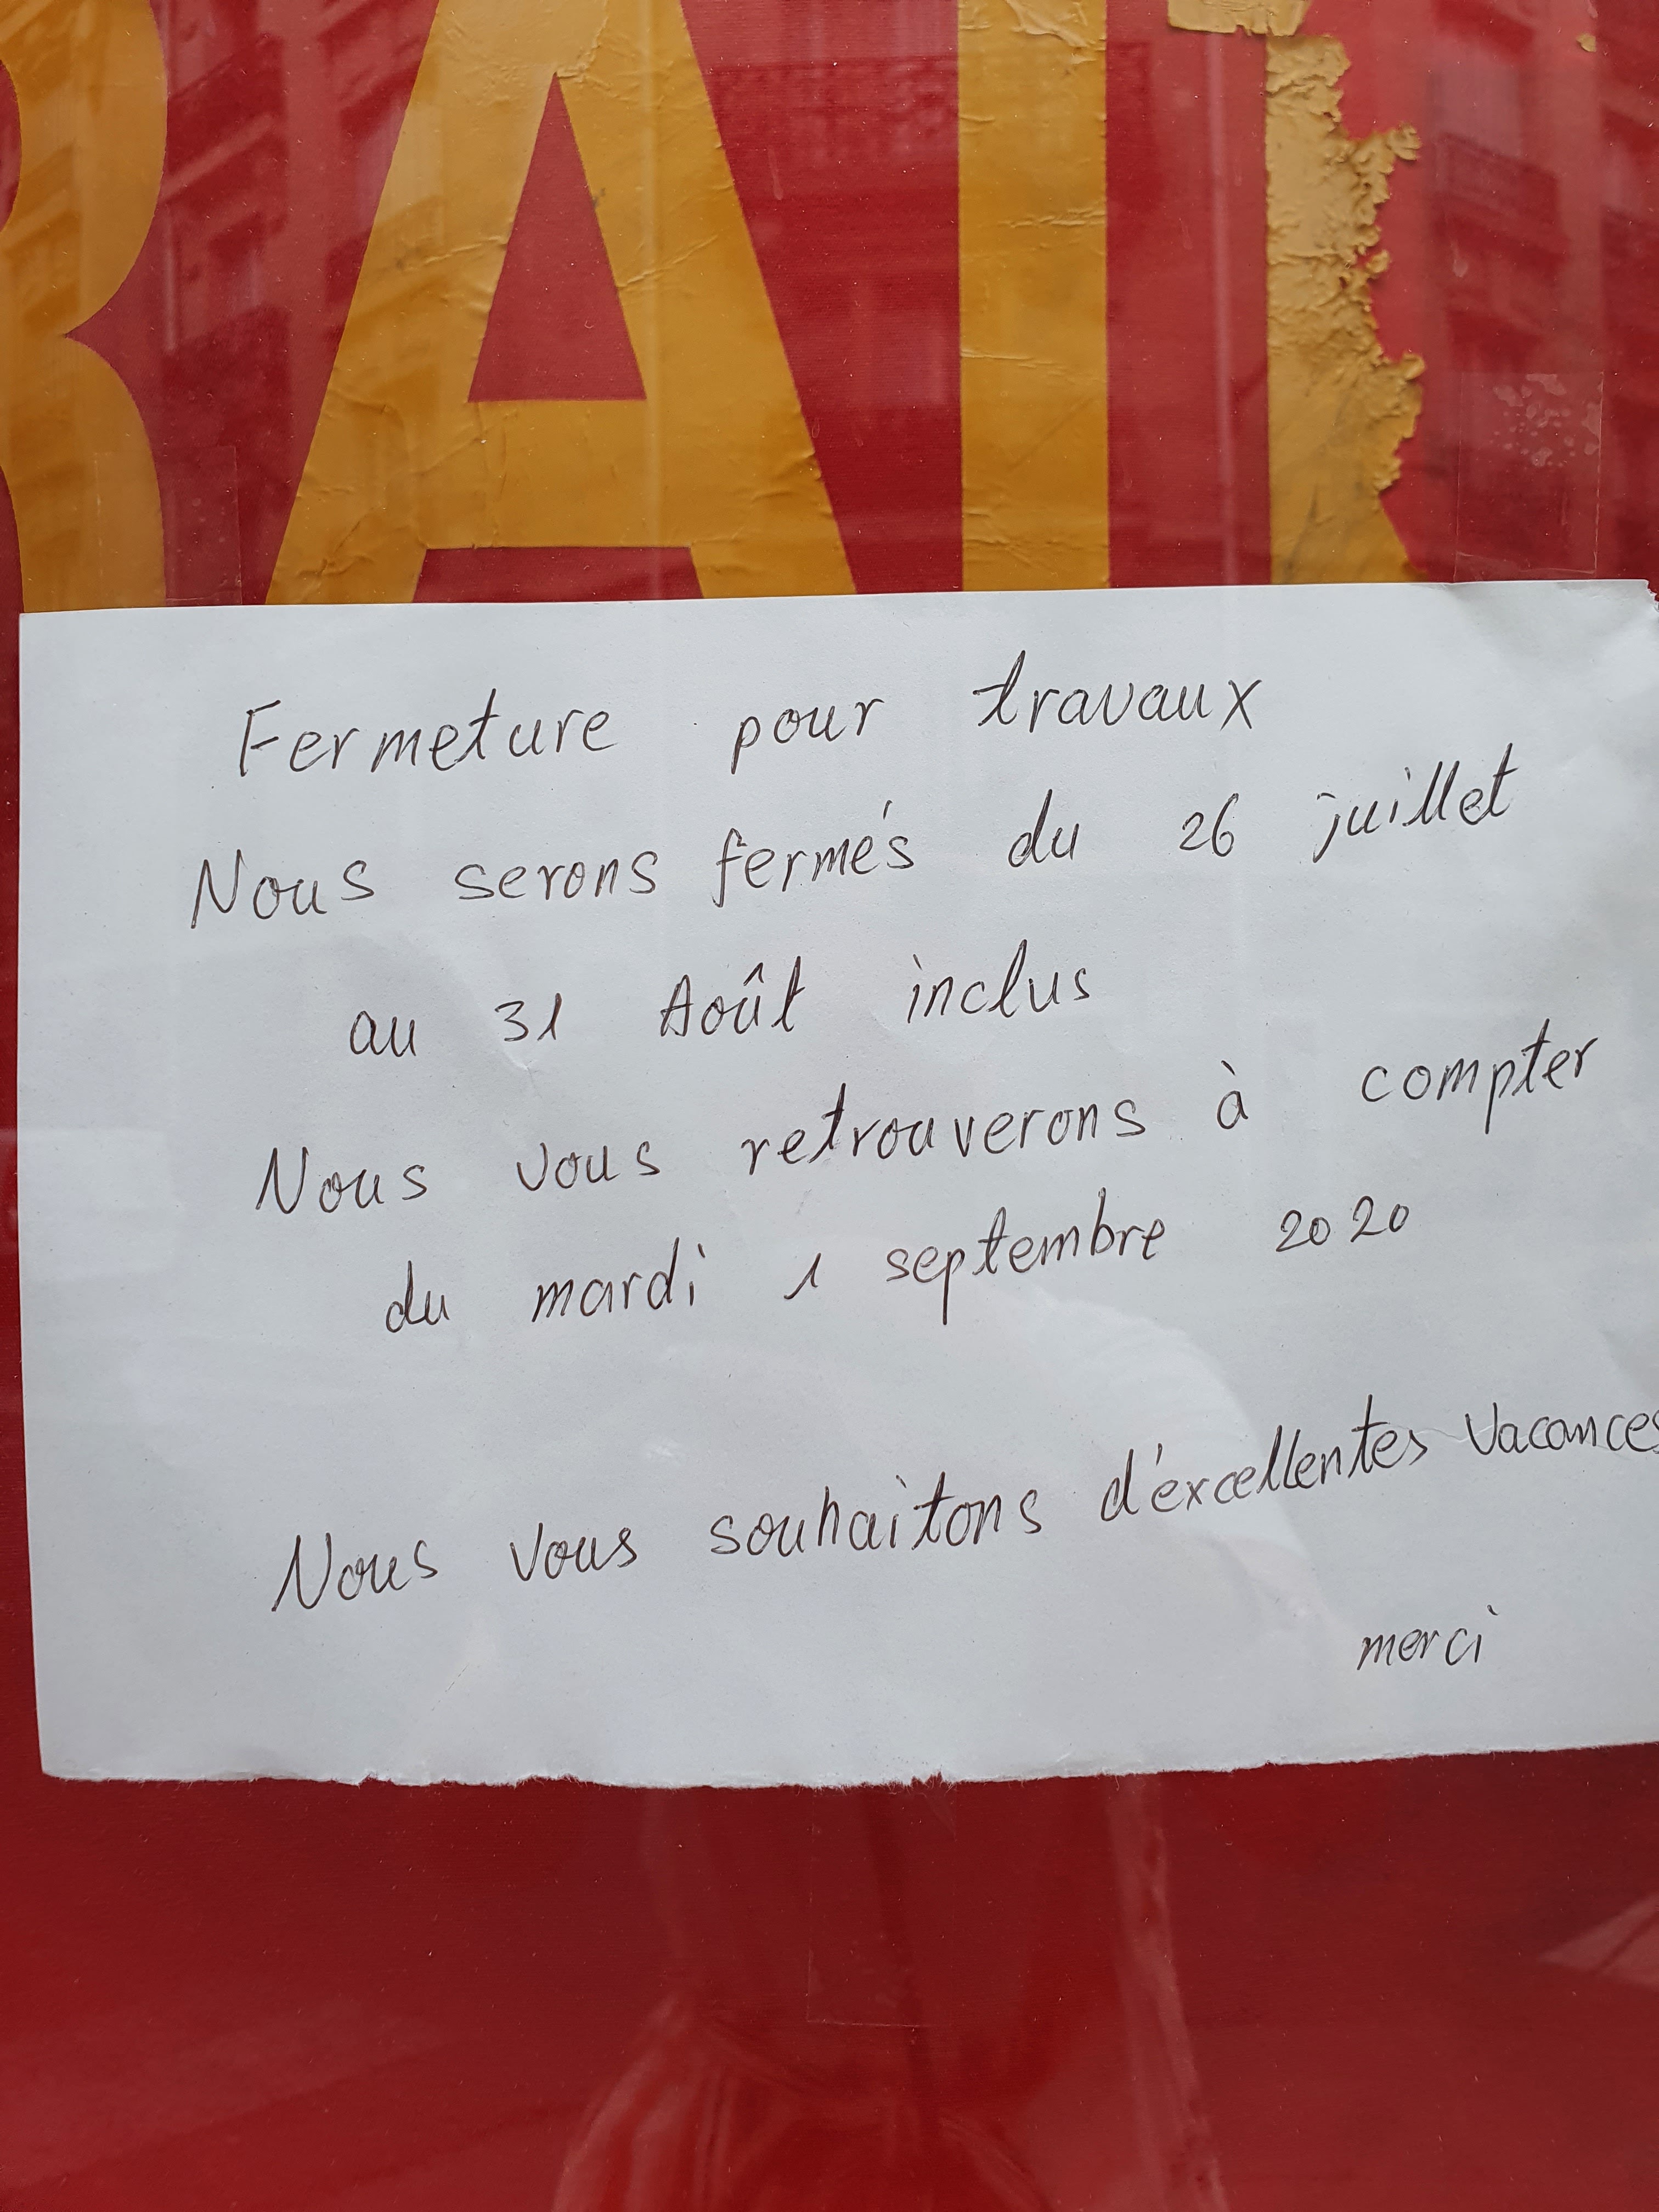 Fermeture pour travaux
Nous serons fermés du 26 juillet
au 31 Août inclus
Nous vous retrouverons à compter
du mardi 1 septembre 2020
Nous vous souhaitons d'éxcellentes vacances
merci